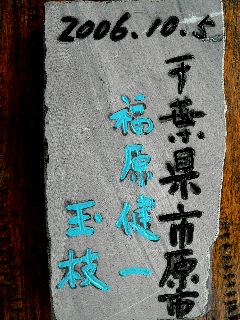 2006.10.5
千葉県市原市
福原健一
玉枝